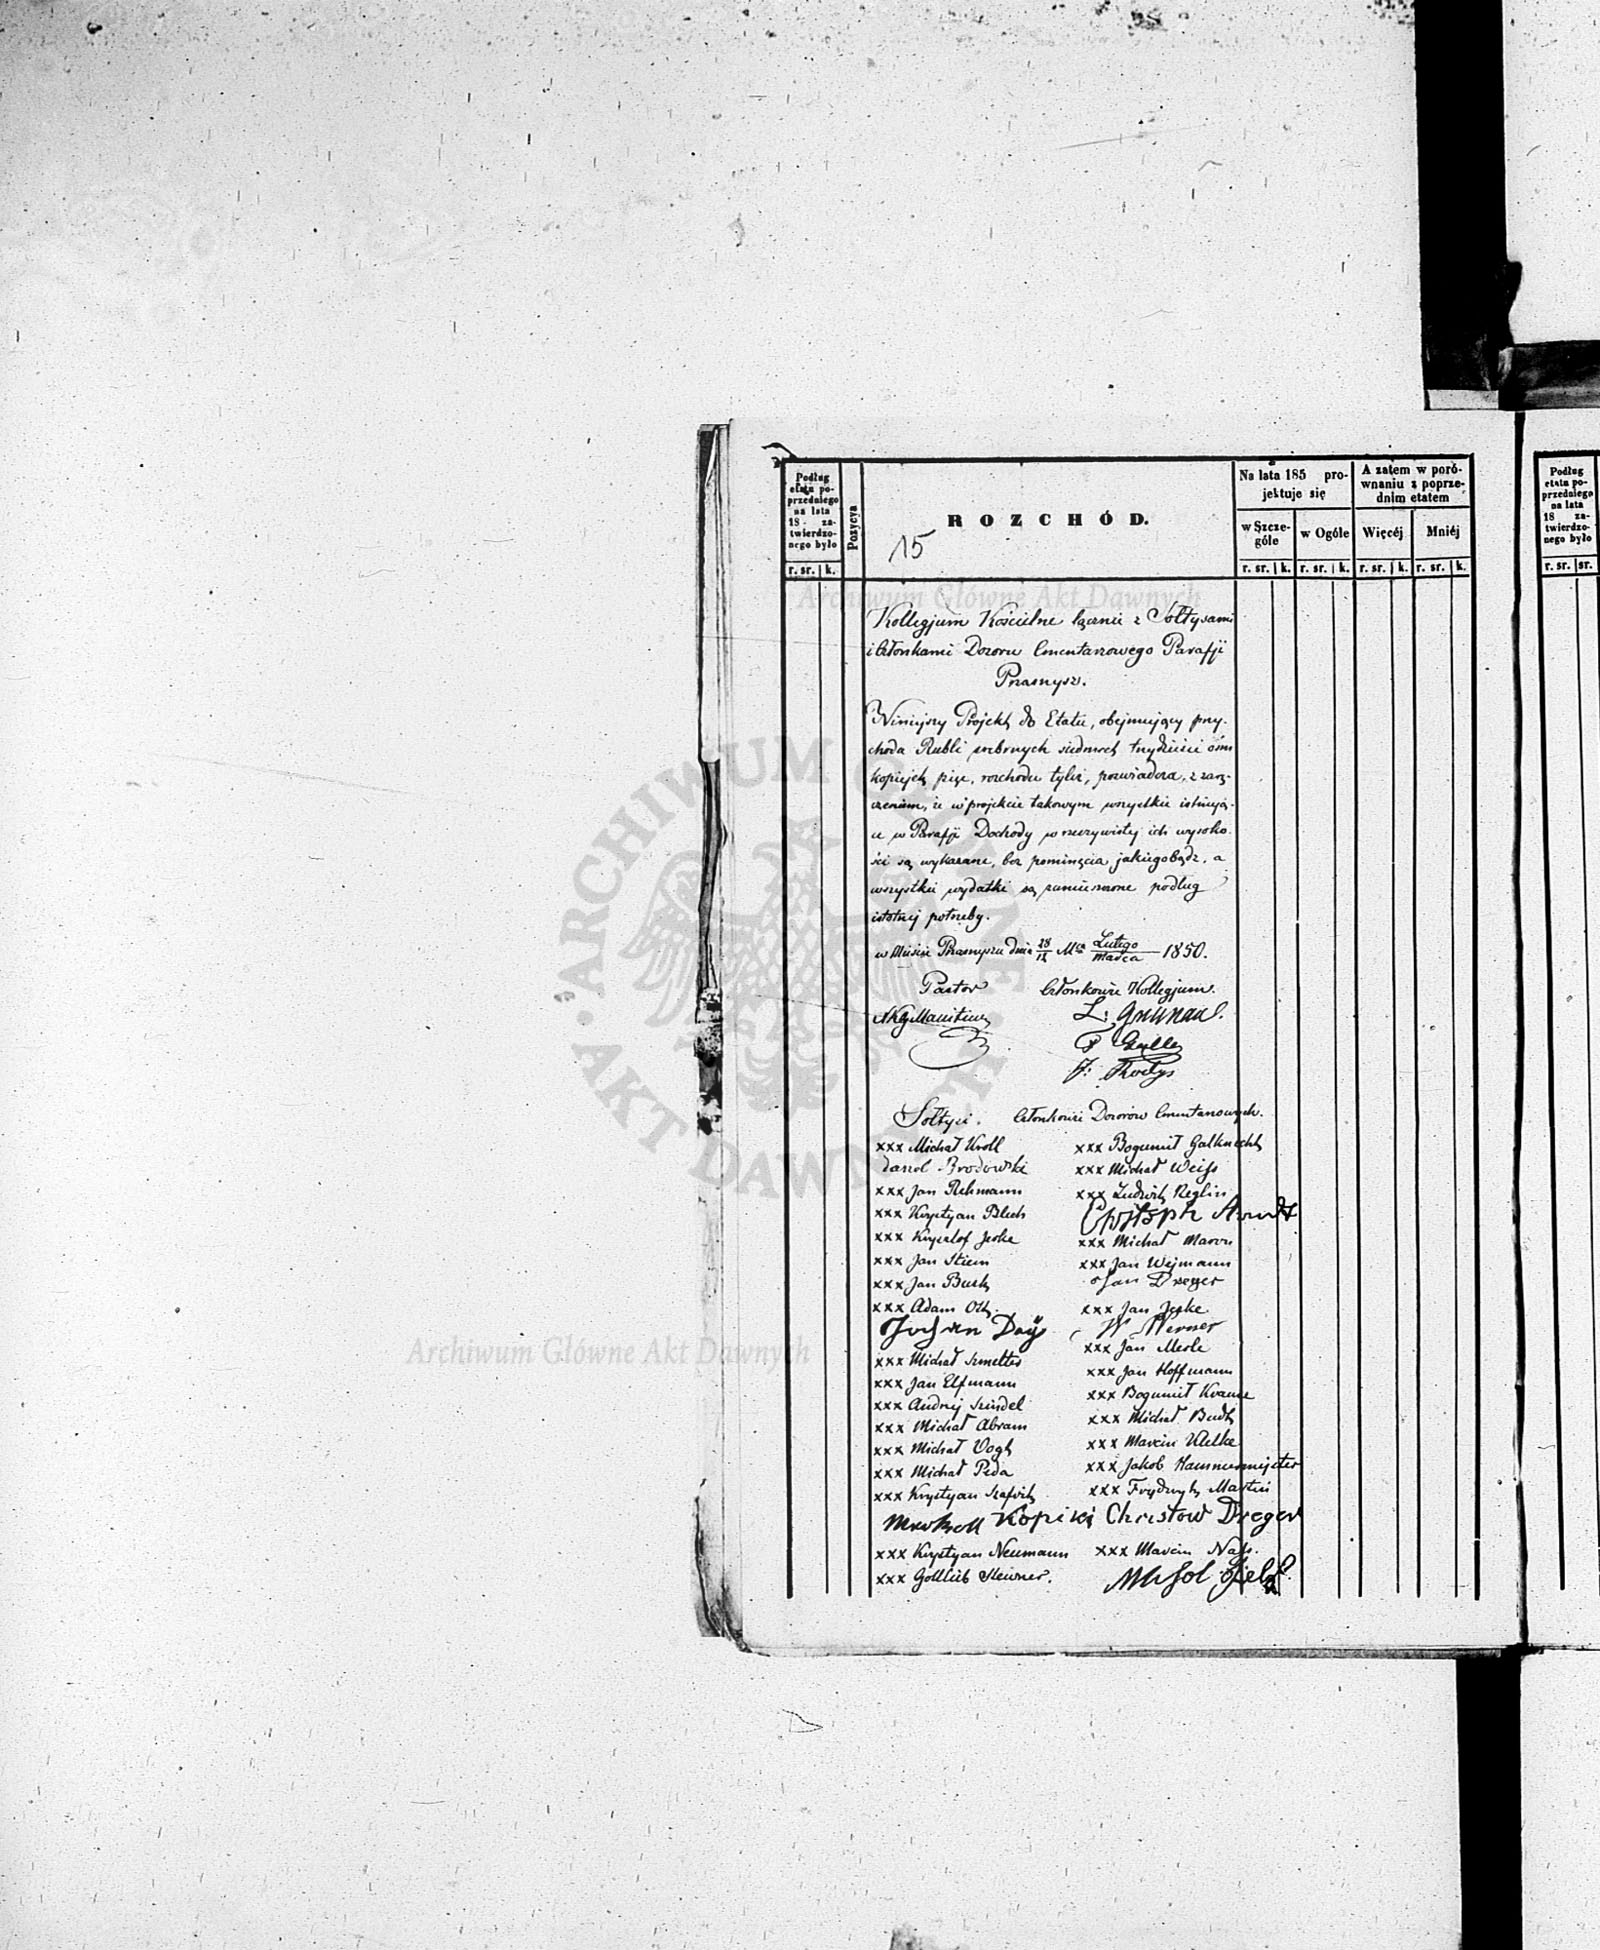 Podług etatu poprzedniego na lata 18 zatwierdzonego było
Pozycya
ROZCHÓD.
15
Na lata 185 projektuje się
A zatém w porównaniu z poprzednim etatem
w Szczególe
w Ogóle
Więcéj
Mniéj
r. sr. k.
r. sr. k.
r. sr. k.
r. sr. k.
r. sr. k.
Kollegjum Kościelne łącznie z Sołtysami
i Członkami Dozoru Cmentarzowego Parafji
Przasnysz.
Niniejszy Projekt do Etatu, obejmujący przy-
chodu Rubli srebrnych siedmset trzydzieści ośm
kopiejek pięć, rozchodu tyleż, poświadcza, z zarę-
czeniem, iż w projekcie takowym wszystkie istnieją-
ce w Parafji Dochody w rzeczywistej ich wysoko-
ści są wykazane, bez pominięcia jakiegobądź, a
wszystkie wydatki są zamieszczone podług
istotnej potrzeby.
w Mieście Przasnyszu dnia Mca Lutego/Marca 1850.
Pastor Członkowie Kollegjum.
Sołtysi. Członkowie Dozorów Cmentarzowych.
xxx Michał Kroll
xxx Bogumił Galknecht
Daniel Brodowski
xxx Michał Weiss
xxx Jan Rehmann
xxx Ludwik Reglin
xxx Krystyan Blech
Christoph Arndt
xxx Krysztof Jeske
xxx Michał
xxx Jan Stiem
xxx Jan Wejmann
xxx Jan
Jan Dreger
xxx Adam Ott
xxx Jan Jeske
Johan Day
W Werner
xxx Michał Szmelter
xxx Jan
xxx Jan Elfmann
xxx Jan Hoffmann
xxx Andrzej Szindel
xxx Bogumił Krause
xxx Michał Abram
xxx Michał
xxx Michał Vogt
xxx Marcin
xxx Michał Peda
xxx Jakob Hammermejster
xxx Krystyan
xxx Frydryk Martin
Christow Dreger
xxx Krystyan Neumann
xxx Marcin Nass.
xxx Gottlieb
Podług etatu poprzedniego na lata 18 zatwierdzonego było
r. sr. sr.
Archiwum Główne Akt Dawnych
Archiwum Główne Akt Dawnych
ARCHIWUM GŁÓWNE AKT DAWNYCH